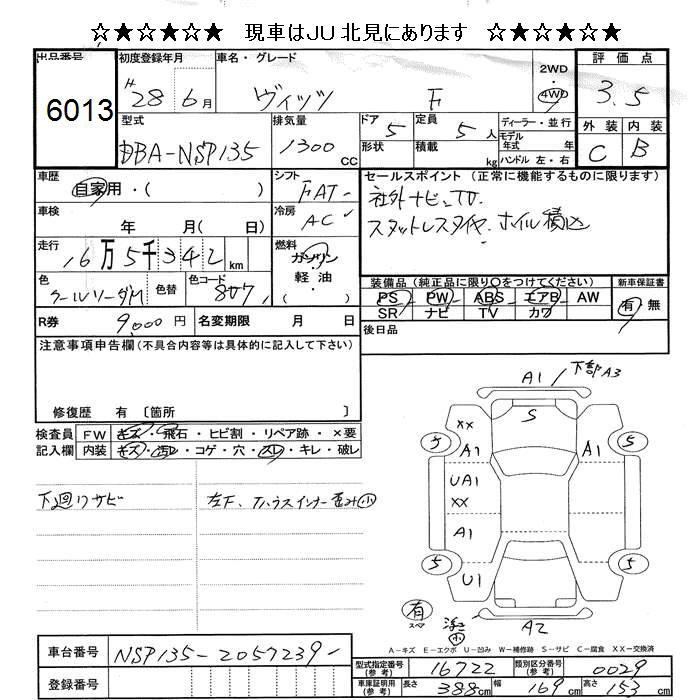 ☆★☆★☆★ 現車はJU北見にあります ☆★☆★☆★
出品番号 6013
初度登録年月 H28年6月
車名・グレード ヴィッツ F
2WD
4WD
評価点 3.5
型式 DBA-NSP135
排気量 1300 CC
ドア 5
形状
定員 5人
積載 kg
ディーラー・並行
モデル年式 年式
ハンドル 左・右
外装 内装
C B
車歴 自家用・( )
シフト FAT
セールスポイント(正常に機能するものに限ります)
社外ナビ、TV
スタットレスタイヤ・ホイル積込
車検 年 月( 日)
冷房 AC
走行 16万5千342 km
燃料 ガソリン・軽油・
色 クールソーダM
色替
色コード 8W7
装備品(純正品に限り○をつけてください)
新車保証書
PS PW ABS エアB AW
SR ナビ TV カワ
有 無
R券 9,000円
名変期限 月 日
後日品
注意事項申告欄(不具合内容等は具体的に記入して下さい)
修復歴 有〔箇所 〕
検査員記入欄
FW キズ・飛石・ヒビ割・リペア跡・×要
内装 キズ・汚レ・コゲ・穴・スレ・キレ・破レ
下廻りサビ
左下、Tハウスインナー歪み小
A1 下部A3
S
XX
A1
A1
5
5
UA1
XX
A1
5
5
U1
有
スペア
A2
小
A-キズ E-エクボ U-凹み W-補修跡 S-サビ C-腐食 XX-交換済
車台番号 NSP135-2057239
登録番号
型式指定番号(参考) 16722
類別区分番号(参考) 0029
車庫証明用(参考) 長さ 388cm 幅 169cm 高さ 153cm